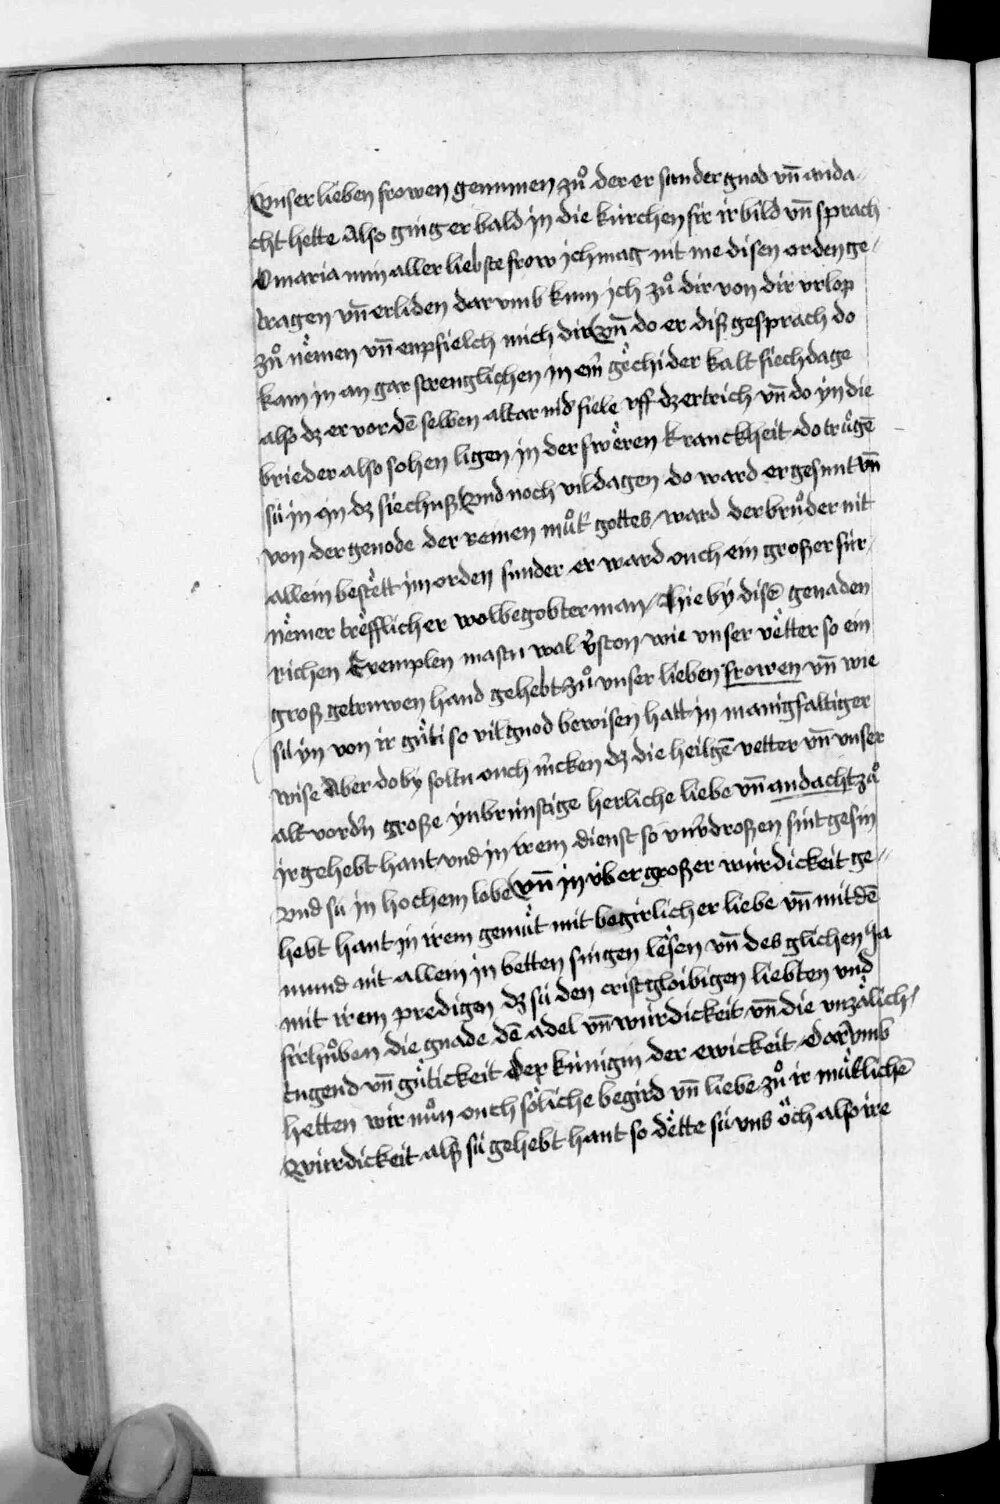 Vnser lieben frowen genummen zuͦ der er sunder gnod vn̄ anda-
cht hette Also ging er bald in die kirchen fir ir bild vn̄ sprach
O maria min aller liebste frow ich mag nit me disen orden ge-
tragen vn̄ erliden dar vmb kum ich zuͦ dir von dir vrlop
zuͦ nemen vn̄ enpfielch mich dir Vn̄ do er diß gesprach do
kam in an gar strenglichen in ein̄ gechi der kalt siechdage
also dz er vor dē selben altar nid̓ fiele vff dz ertrich vn̄ do yn die
brieder also sohen ligen in der sweren kranckheit do truͤgē
sü in in dz siechhuß Vnd noch vil dagen do ward er gesunt vn̄
von der genode der reinen muͦt̓ gottes / ward der bruͦder nit
allein bestett im orden sunder er ward ouch ein großer für-
nemer trefflicher wolbegobter man / Hie by disē genaden
richen Exemplen mastu wal v̓ston wie vnser vetter so ein
groß getruwen hand gehebt zuͦ vnser lieben frowen vn̄ wie
sü yn von ir guͤti so vil gnod bewisen hatt in manigfaltiger
wise Aber do by soltu ouch m̓cken dz die heilgē vetter vn̄ vnser
alt vordn̓ große ynbrünstige herliche liebe vn̄ andacht zuͦ
ir gehebt hant vnd in irem dienst so vnv̓droßen sint gesin
vnd sü in hochem lobe Vn̄ in über großer würdickeit ge-
hebt hant in irem gemüt mit begirlicher liebe vn̄ mit dē
mund nit allein in betten singen lesen vn̄ des glichen Ja
mit irem predigen dz sü den cristgloibigen liebten vnd
fürhuͦben die gnade dē adel vn̄ würdickeit vn̄ die vnzälich-
tugend vn̄ gütickeit Der künigin der ewickeit Dar vmb
hetten wir nuͦn ouch söliche begird vn̄ liebe zuͦ ir muͤt̓lichē
Würdickeit alß sü gehebt hant so dette sü vns och also ire